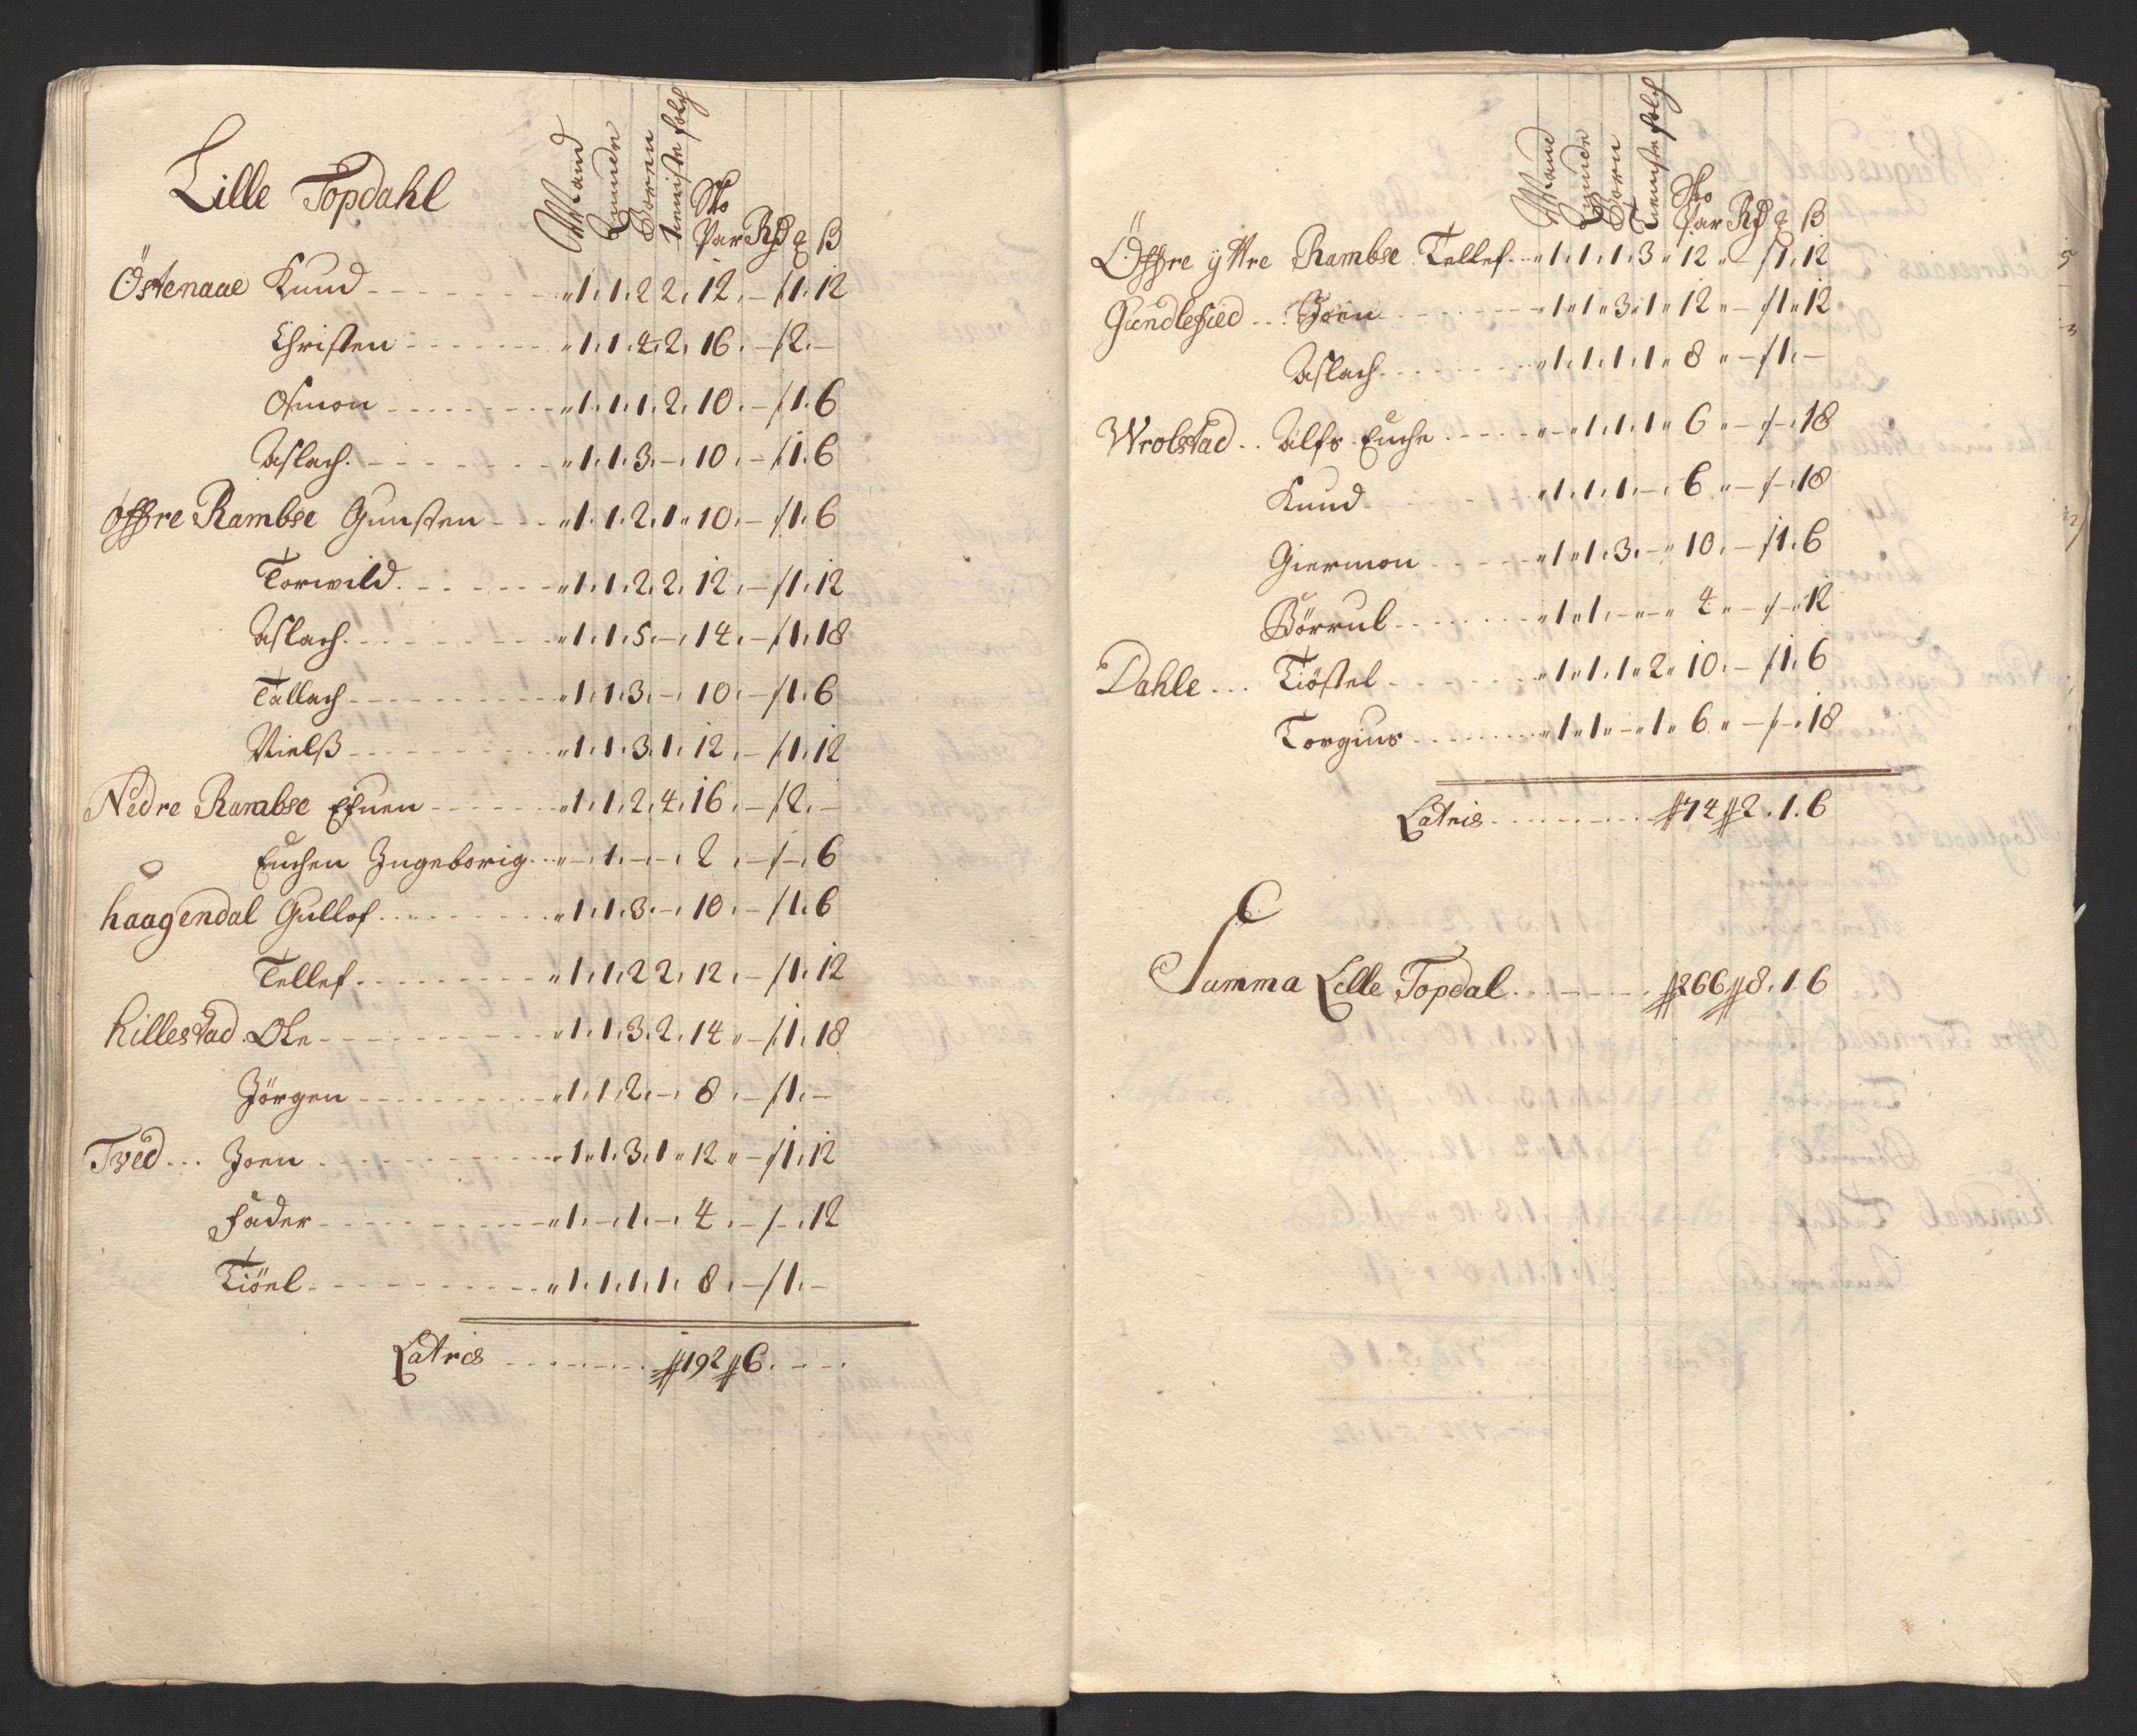 Lille Topdahl
Mand
Quinde
Boren
tieniste folch
Sko
Par Rd q β
Östenaae Knud - - - " 1. 1. 2 2. 12. - / 1. 12
Christen - - - " 1. 1. 4. 2. 16. - / 2. -
Osmon - - - " 1. 1. 1. 2. 10. - / 1. 6
Aslach. - - - " 1. 1. 3. -. 10. - / 1. 6
Øffre Rambse Gunsten - - - " 1. 1. 2. 1 " 10. - / 1. 6
Torwild. - - - " 1. 1. 2. 2. 12. - / 1. 12
Aslach. - - - " 1. 1. 5. -. 14. - / 1. 18
Tallach - - - " 1. 1. 3. -. 10. - / 1. 6
Nielß - - - " 1. 1. 3. 1. 12. - / 1. 12
Nedre Rambse Efuen - - - " 1. 1. 2. 4. 16. - / 2. -
Enchen Ingeborig - - - " -. 1. -. -. 2. - / -. 6
haagendal Gullof - - - " 1. 1. 3. -. 10. - / 1. 6
Tellef - - - " 1. 1. 2 2. 12. - / 1. 12
hillestad. Ole - - - " 1. 1. 3. 2. 14 " - / 1. 18
Jörgen - - - " 1. 1. 2. -. 8. - / 1. -
Tved ... Joen - - - 1 " 1. 3. 1 " 12 " - / 1. 12
Fader - - - " 1. -. 1. -. 4. - / -. 12
Tiöel - - - " 1. 1. 1. 1. 8. - / 1. -
Latris - - - 192 6. - -
Mand
Quinde
Born
Tieniste folch
Sko
Par Rd q β
Öffre ÿttre Rambse Tellef - - " 1. 1. 1. 3 " 12 " - / 1. 12
Gundlefied ... Joen - - - " 1 " 1 " 3. 1 " 12 " - / 1 " 12
Aslach - - - " 1. 1. 1. 1 " 8 " - / 1. -
Wrolstad .. Alfs Enche - - - " - " 1. 1. 1 " 6 " - / -. 18
Knud - - - " 1. 1. 1. -. 6 " - / -. 18
Giermon - - - " 1 " 1. 3. - " 10. - / 1. 6
Börrul - - - " 1 " 1. - " - " 4 " - / - " 12
Dahle ... Tiöstel - - - " 1 " 1. 1 " 2 " 10. - / 1. 6
Torgius - - - " 1 " 1 " - " 1 " 6 " - / - " 18
Latris - - - 74 2. 1. 6
Summa Lille Topdal - - - 266 8. 1. 6